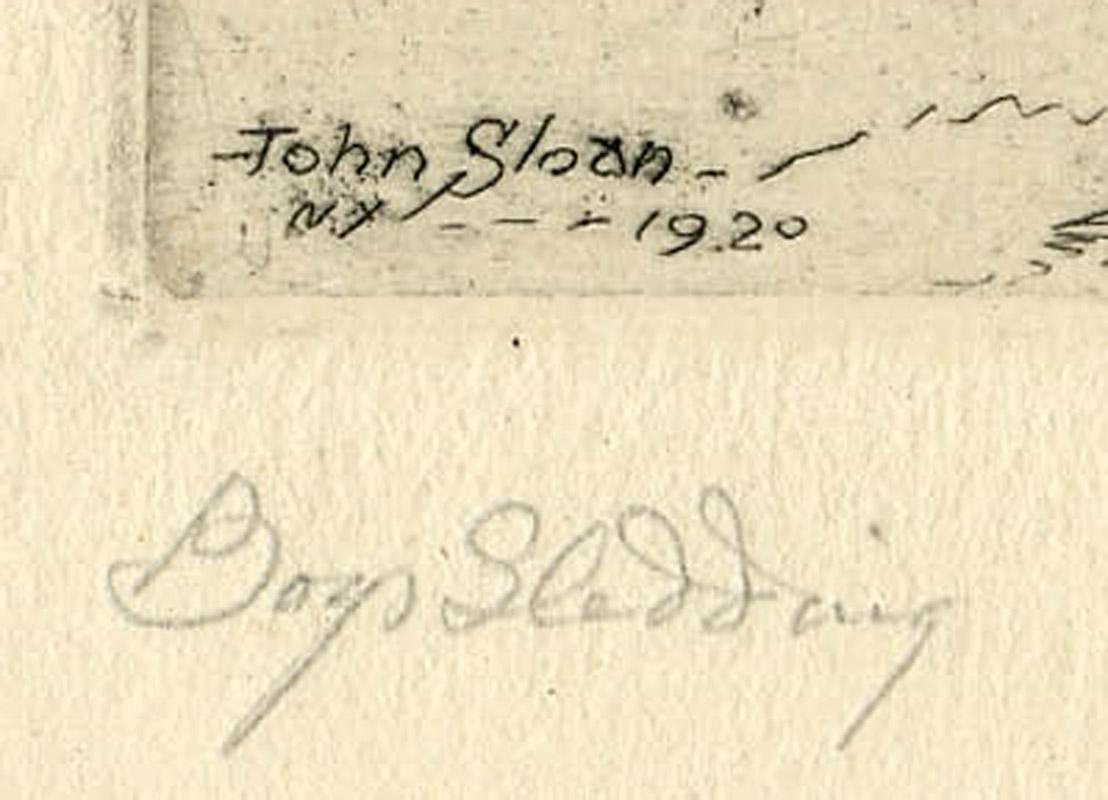 John Sloan -
N.Y - - - 1920
Boys Sledding